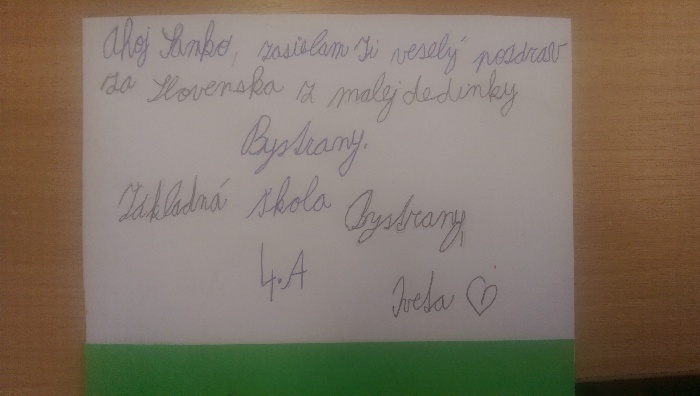 Ahoj Samko, zasielam Ti veselý pozdrav
za Slovenska z malej dedinky
Bystrany.
Základná škola Bystrany,
4.A
Iveta